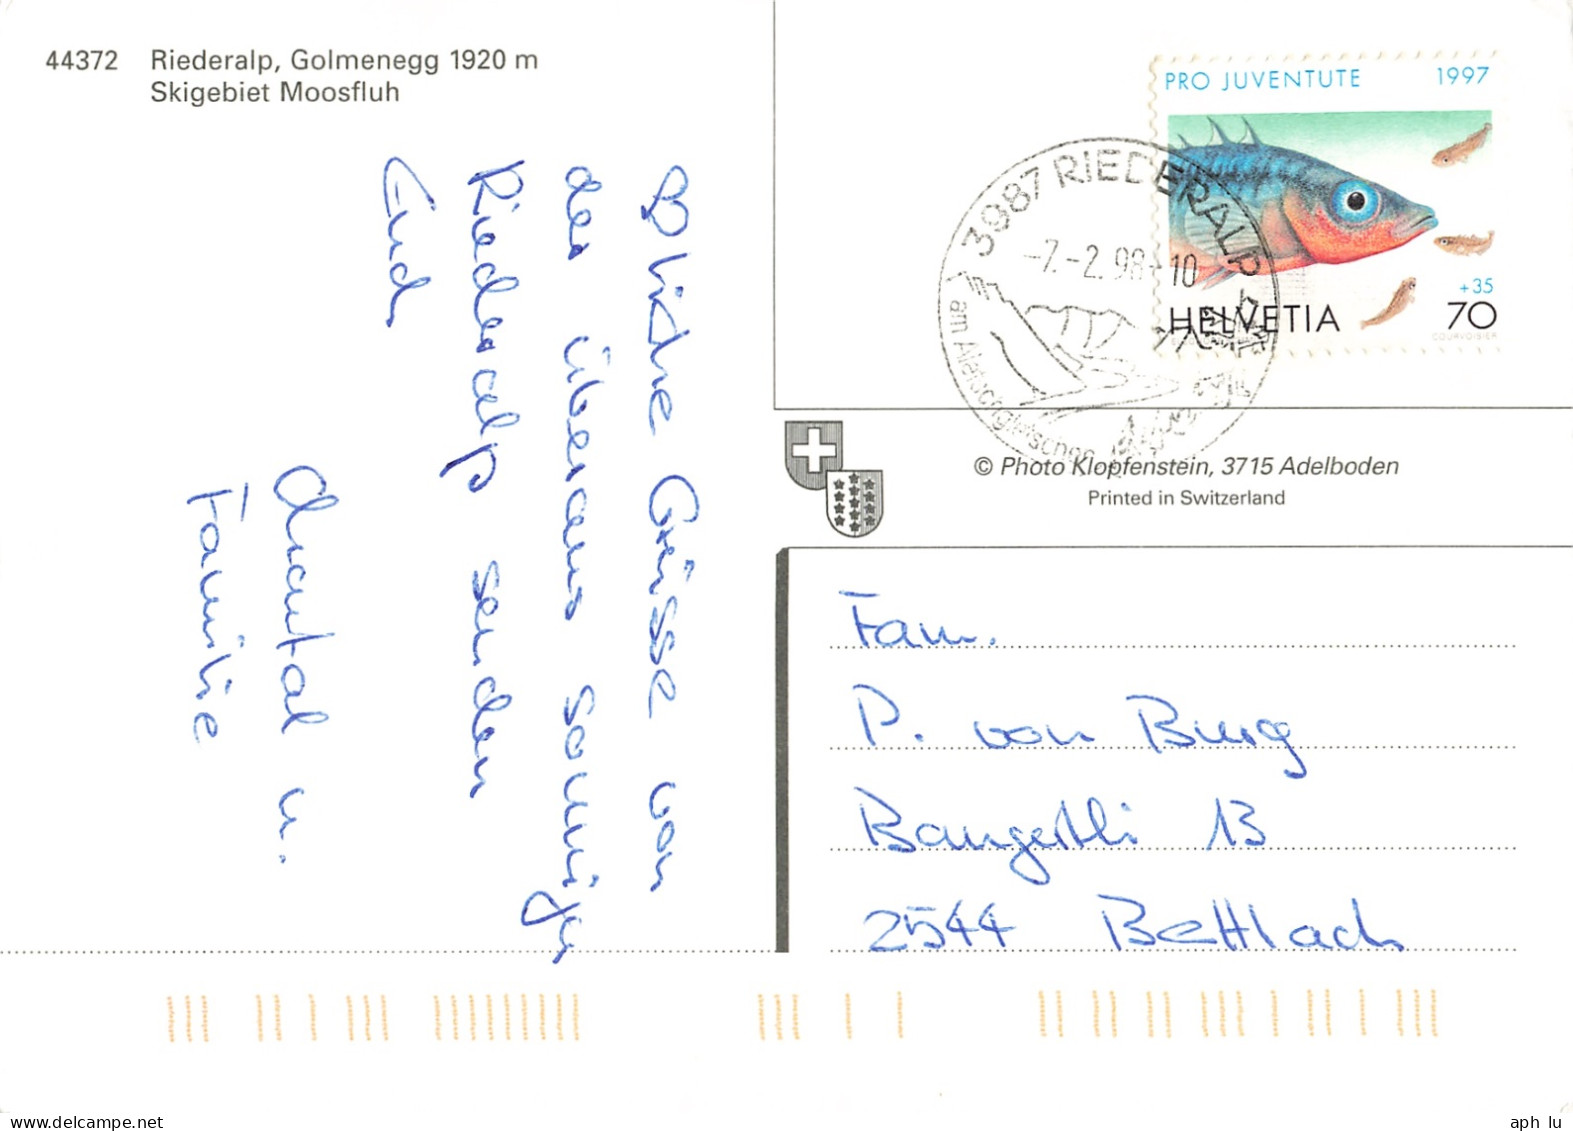 44372 Riederalp, Golmenegg 1920 m
Skigebiet Moosfluh
♡liche Grüsse von
der überaus sonnigen
Riederalp senden
Euch
Chantal u.
Familie
PRO JUVENTUTE 1997
+35
HELVETIA 70
COURVOISIER
3987 RIEDERALP
-7.-2.98-10
am Aletschgletscher
© Photo Klopfenstein, 3715 Adelboden
Printed in Switzerland
Fam.
P. von Burg
Bangertli 13
2544 Bettlach
aph lu